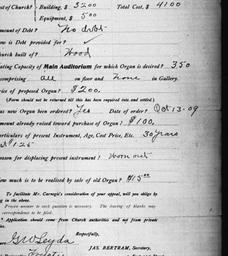 of Church? Building, $ 3200 Total Cost, $ 4100
Equipment, $ 500
Amount of Debt? No debt
is Debt provided for?
Church built of? Wood
Seating Capacity of Main Auditorium for which Organ is desired? 350
comprising all on floor and None in Gallery.
Price of proposed Organ? $200.
(Form should not be returned till this has been required into and settled.)
was new Organ been ordered? Yes Date of order? Oct 13-09
Amount already raised toward purchase of Organ? $100.
Particulars of present Instrument, Age, Cost Price, Etc. 30 years
$125
Reason for displacing present instrument? Worn out
How much is to be realised for sale of old Organ? $15.00
To facilitate Mr. Carnegie's consideration of your appeal, will you oblige by
in the above.
Proper answer to each question is necessary. The leaving of blanks may
correspondence to be filed.
Application should come from Church authorities and not from private
Respectfully,
G W Leyda
JAS. BERTRAM, Secretary.
Trustee